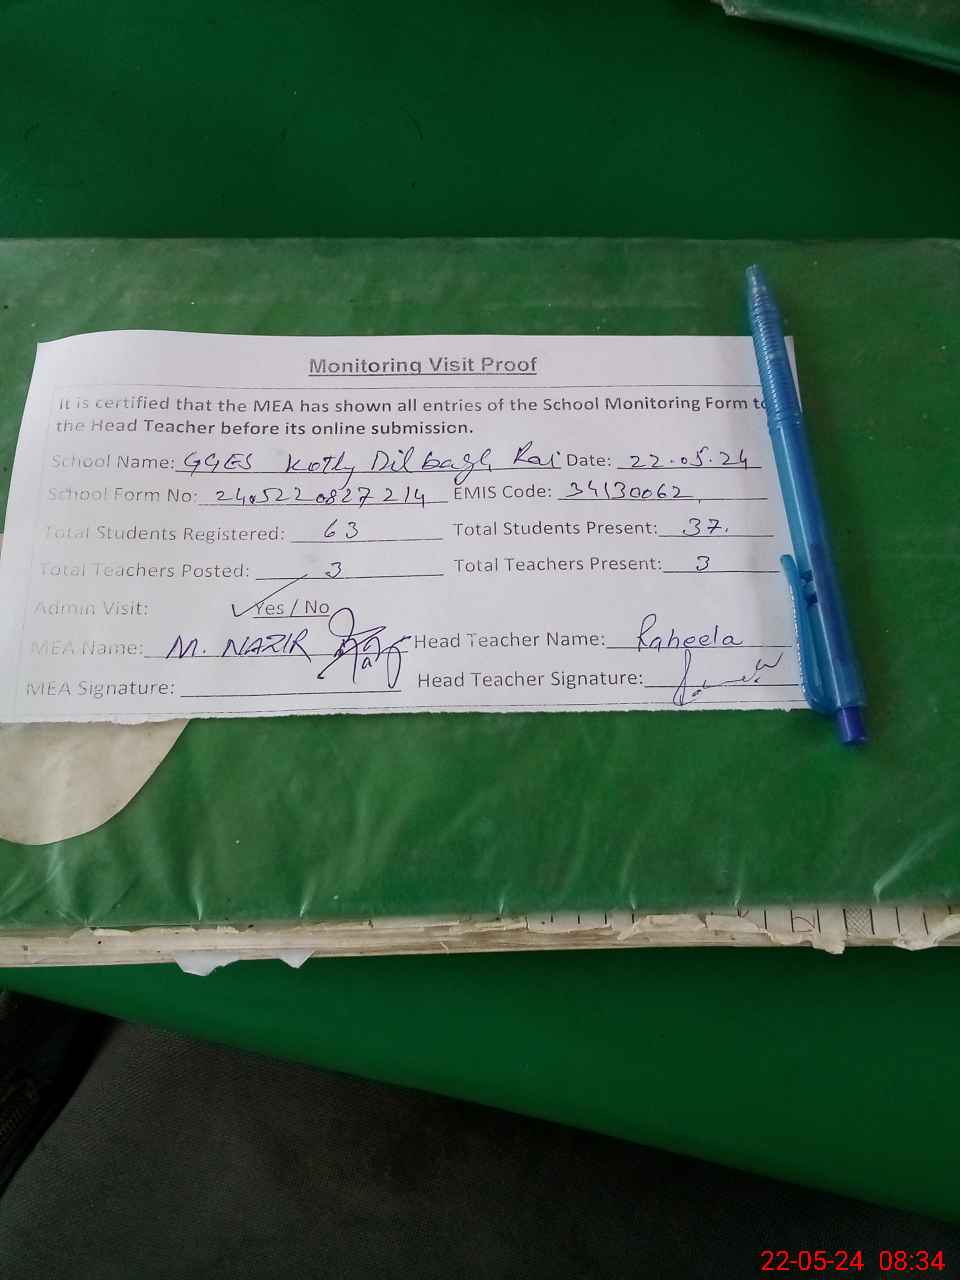 Monitoring Visit Proof
It is certified that the MEA has shown all entries of the School Monitoring Form to
the Head Teacher before its online submission.
School Name: GGES Kotly Dilbagh Rai Date: 22.05.24
School Form No: 2405220827214 EMIS Code: 34130062
Total Students Registered: 63 Total Students Present: 37.
Total Teachers Posted: 3 Total Teachers Present: 3
Admin Visit: Yes / No
MEA Name: M. NAZIR Head Teacher Name: Raheela
MEA Signature: Head Teacher Signature:
22-05-24 08:34